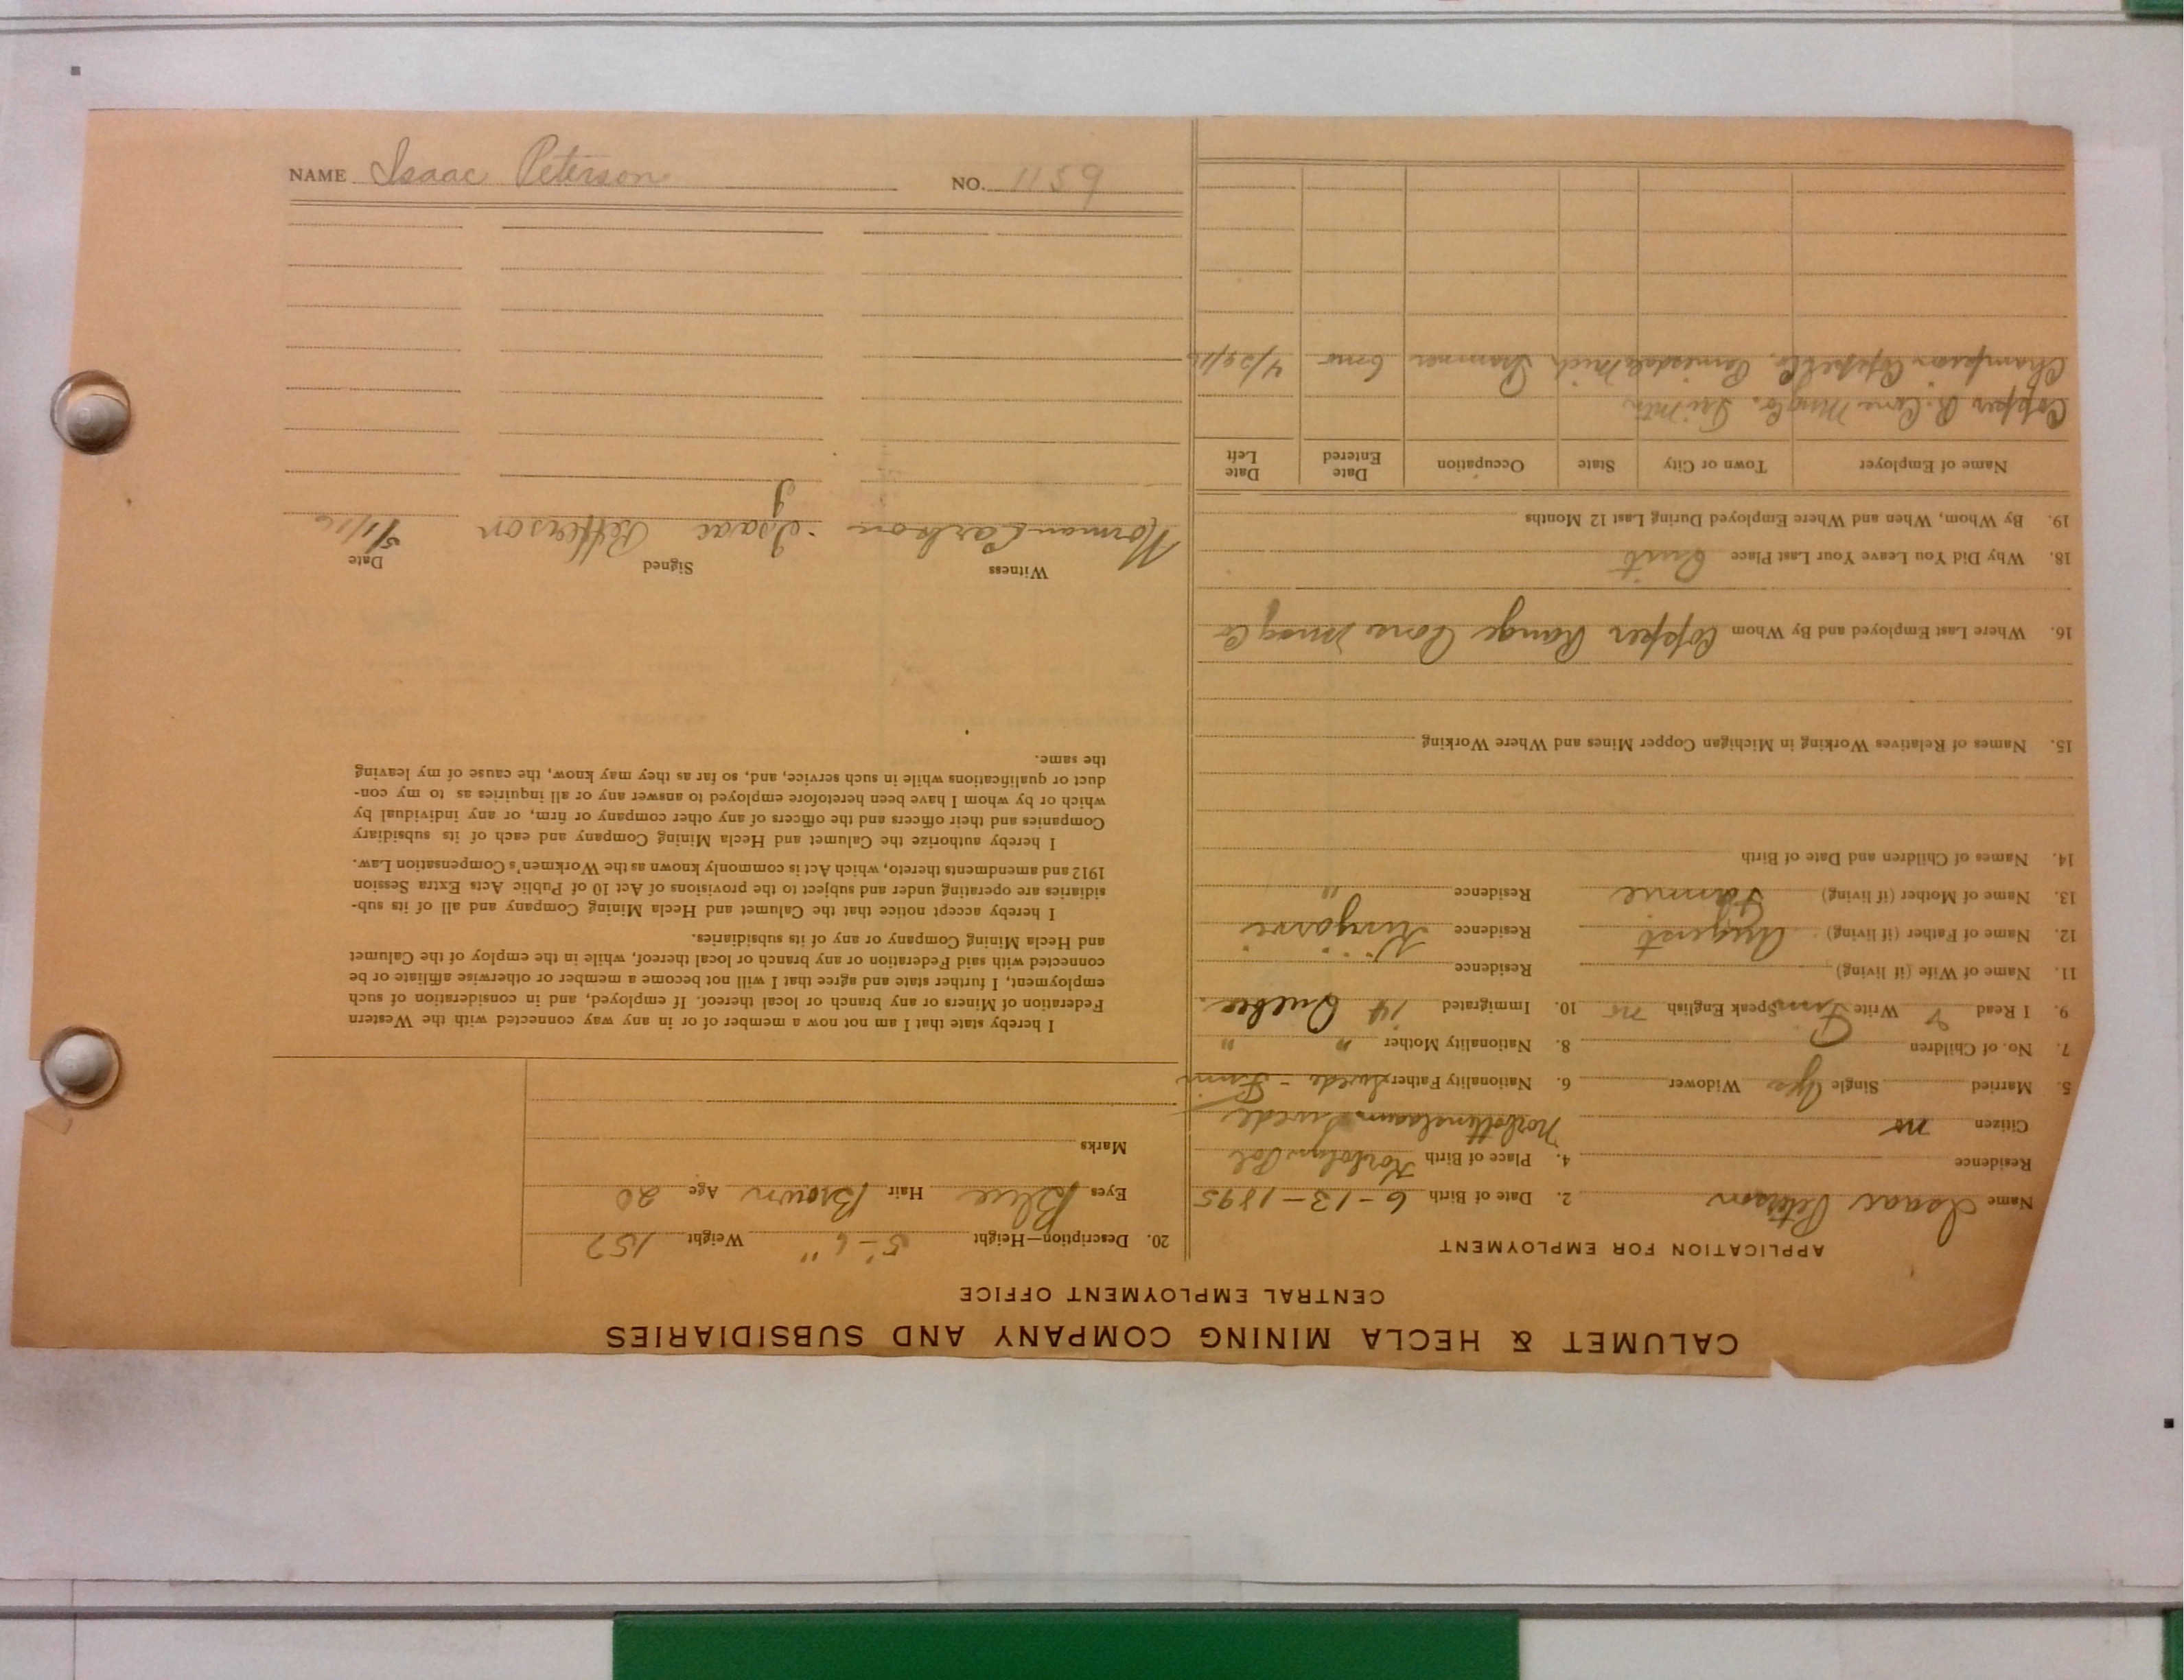 CALUMET & HECLA MINING COMPANY AND SUBSIDIARIES
CENTRAL EMPLOYMENT OFFICE
APPLICATION FOR EMPLOYMENT
Name Isaac Peterson 2. Date of Birth 6-13-1895
Residence 4. Place of Birth
Citizen no
5. Married Single Yes Widower 6. Nationality Father Swede - Finn
7. No. of Children 8. Nationality Mother " "
9. I Read & Write Finn Speak English no 10. Immigrated 14 Quebec.
11. Name of Wife (if living) Residence
12. Name of Father (if living) August Residence
13. Name of Mother (if living) Residence "
14. Names of Children and Date of Birth
15. Names of Relatives Working in Michigan Copper Mines and Where Working
16. Where Last Employed and By Whom Copper Range Cons Ming Co
18. Why Did You Leave Your Last Place Quit
19. By Whom, When and Where Employed During Last 12 Months
Name of Employer Town or City State Occupation Date Entered Date Left
Copper R. Cons Ming Co. Tri Mtn
Champion Copper Co. Painesdale Mich Trammer 6 mo 4/29/16
20. Description—Height 5'-6" Weight 157
Eyes Blue Hair Brown Age 20
Marks
I hereby state that I am not now a member of or in any way connected with the Western
Federation of Miners or any branch or local thereof. If employed, and in consideration of such
employment, I further state and agree that I will not become a member or otherwise affiliate or be
connected with said Federation or any branch or local thereof, while in the employ of the Calumet
and Hecla Mining Company or any of its subsidiaries.
I hereby accept notice that the Calumet and Hecla Mining Company and all of its sub-
sidiaries are operating under and subject to the provisions of Act 10 of Public Acts Extra Session
1912 and amendments thereto, which Act is commonly known as the Workmen's Compensation Law.
I hereby authorize the Calumet and Hecla Mining Company and each of its subsidiary
Companies and their officers and the officers of any other company or firm, or any individual by
which or by whom I have been heretofore employed to answer any or all inquiries as to my con-
duct or qualifications while in such service, and, so far as they may know, the cause of my leaving
the same.
Witness Signed Date
Norman Carlson Isaac Petterson 5/1/16
NAME Isaac Peterson NO. 1159